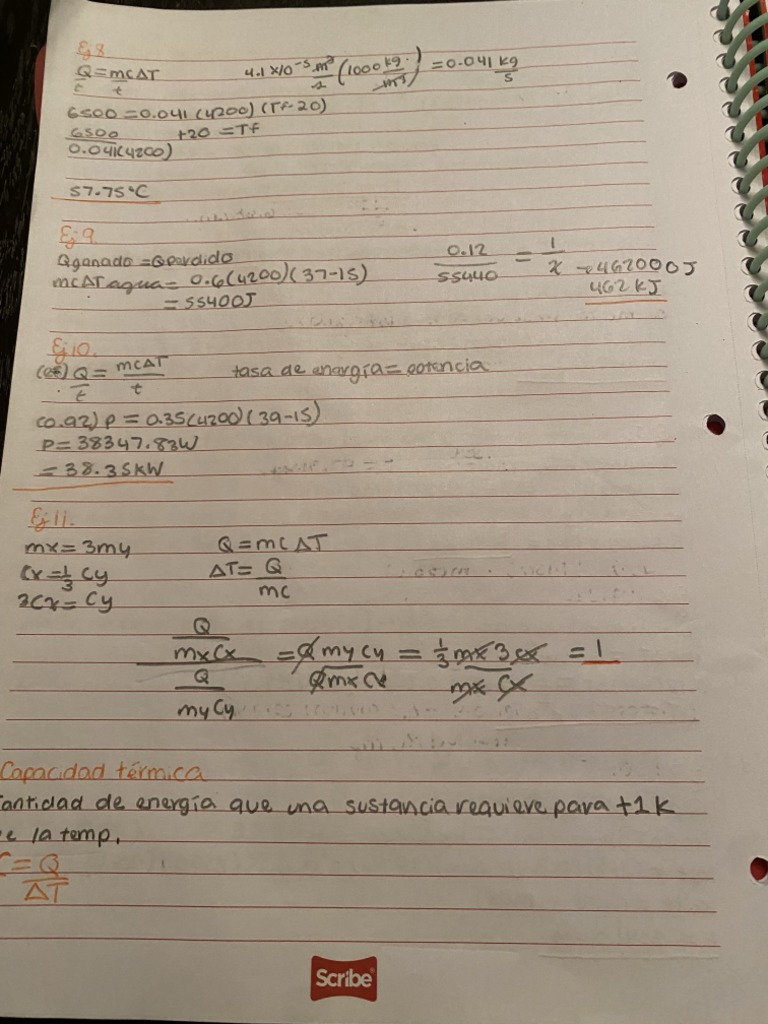 Ej 8.
Q/t = mcΔT/t    4.1×10⁻⁵ m³/s (1000 kg/m³) = 0.041 kg/s
6500 = 0.041 (4200) (Tf-20)
6500/0.041(4200) +20 = Tf
57.75°C
Ej 9.
Qganado = Qperdido    0.12/55440 = 1/x → 462000J
mcΔT agua = 0.6(4200)(37-15)    462 kJ
= 55400J
Ej 10.
Q/t = mcΔT/t    tasa de energía = potencia
(0.92) P = 0.35(4200)(39-15)
P = 38347.83W
= 38.35kW
Ej 11.
mx = 3my    Q = mcΔT
Cx = 1/3 Cy    ΔT = Q/mc
3Cx = Cy
Q/mxCx / Q/myCy = QmyCy/QmxCx = 1/3 mx 3 cx/mx Cx = 1
Capacidad térmica
antidad de energía que una sustancia requiere para +1k
e la temp.
C = Q/ΔT
Scribe